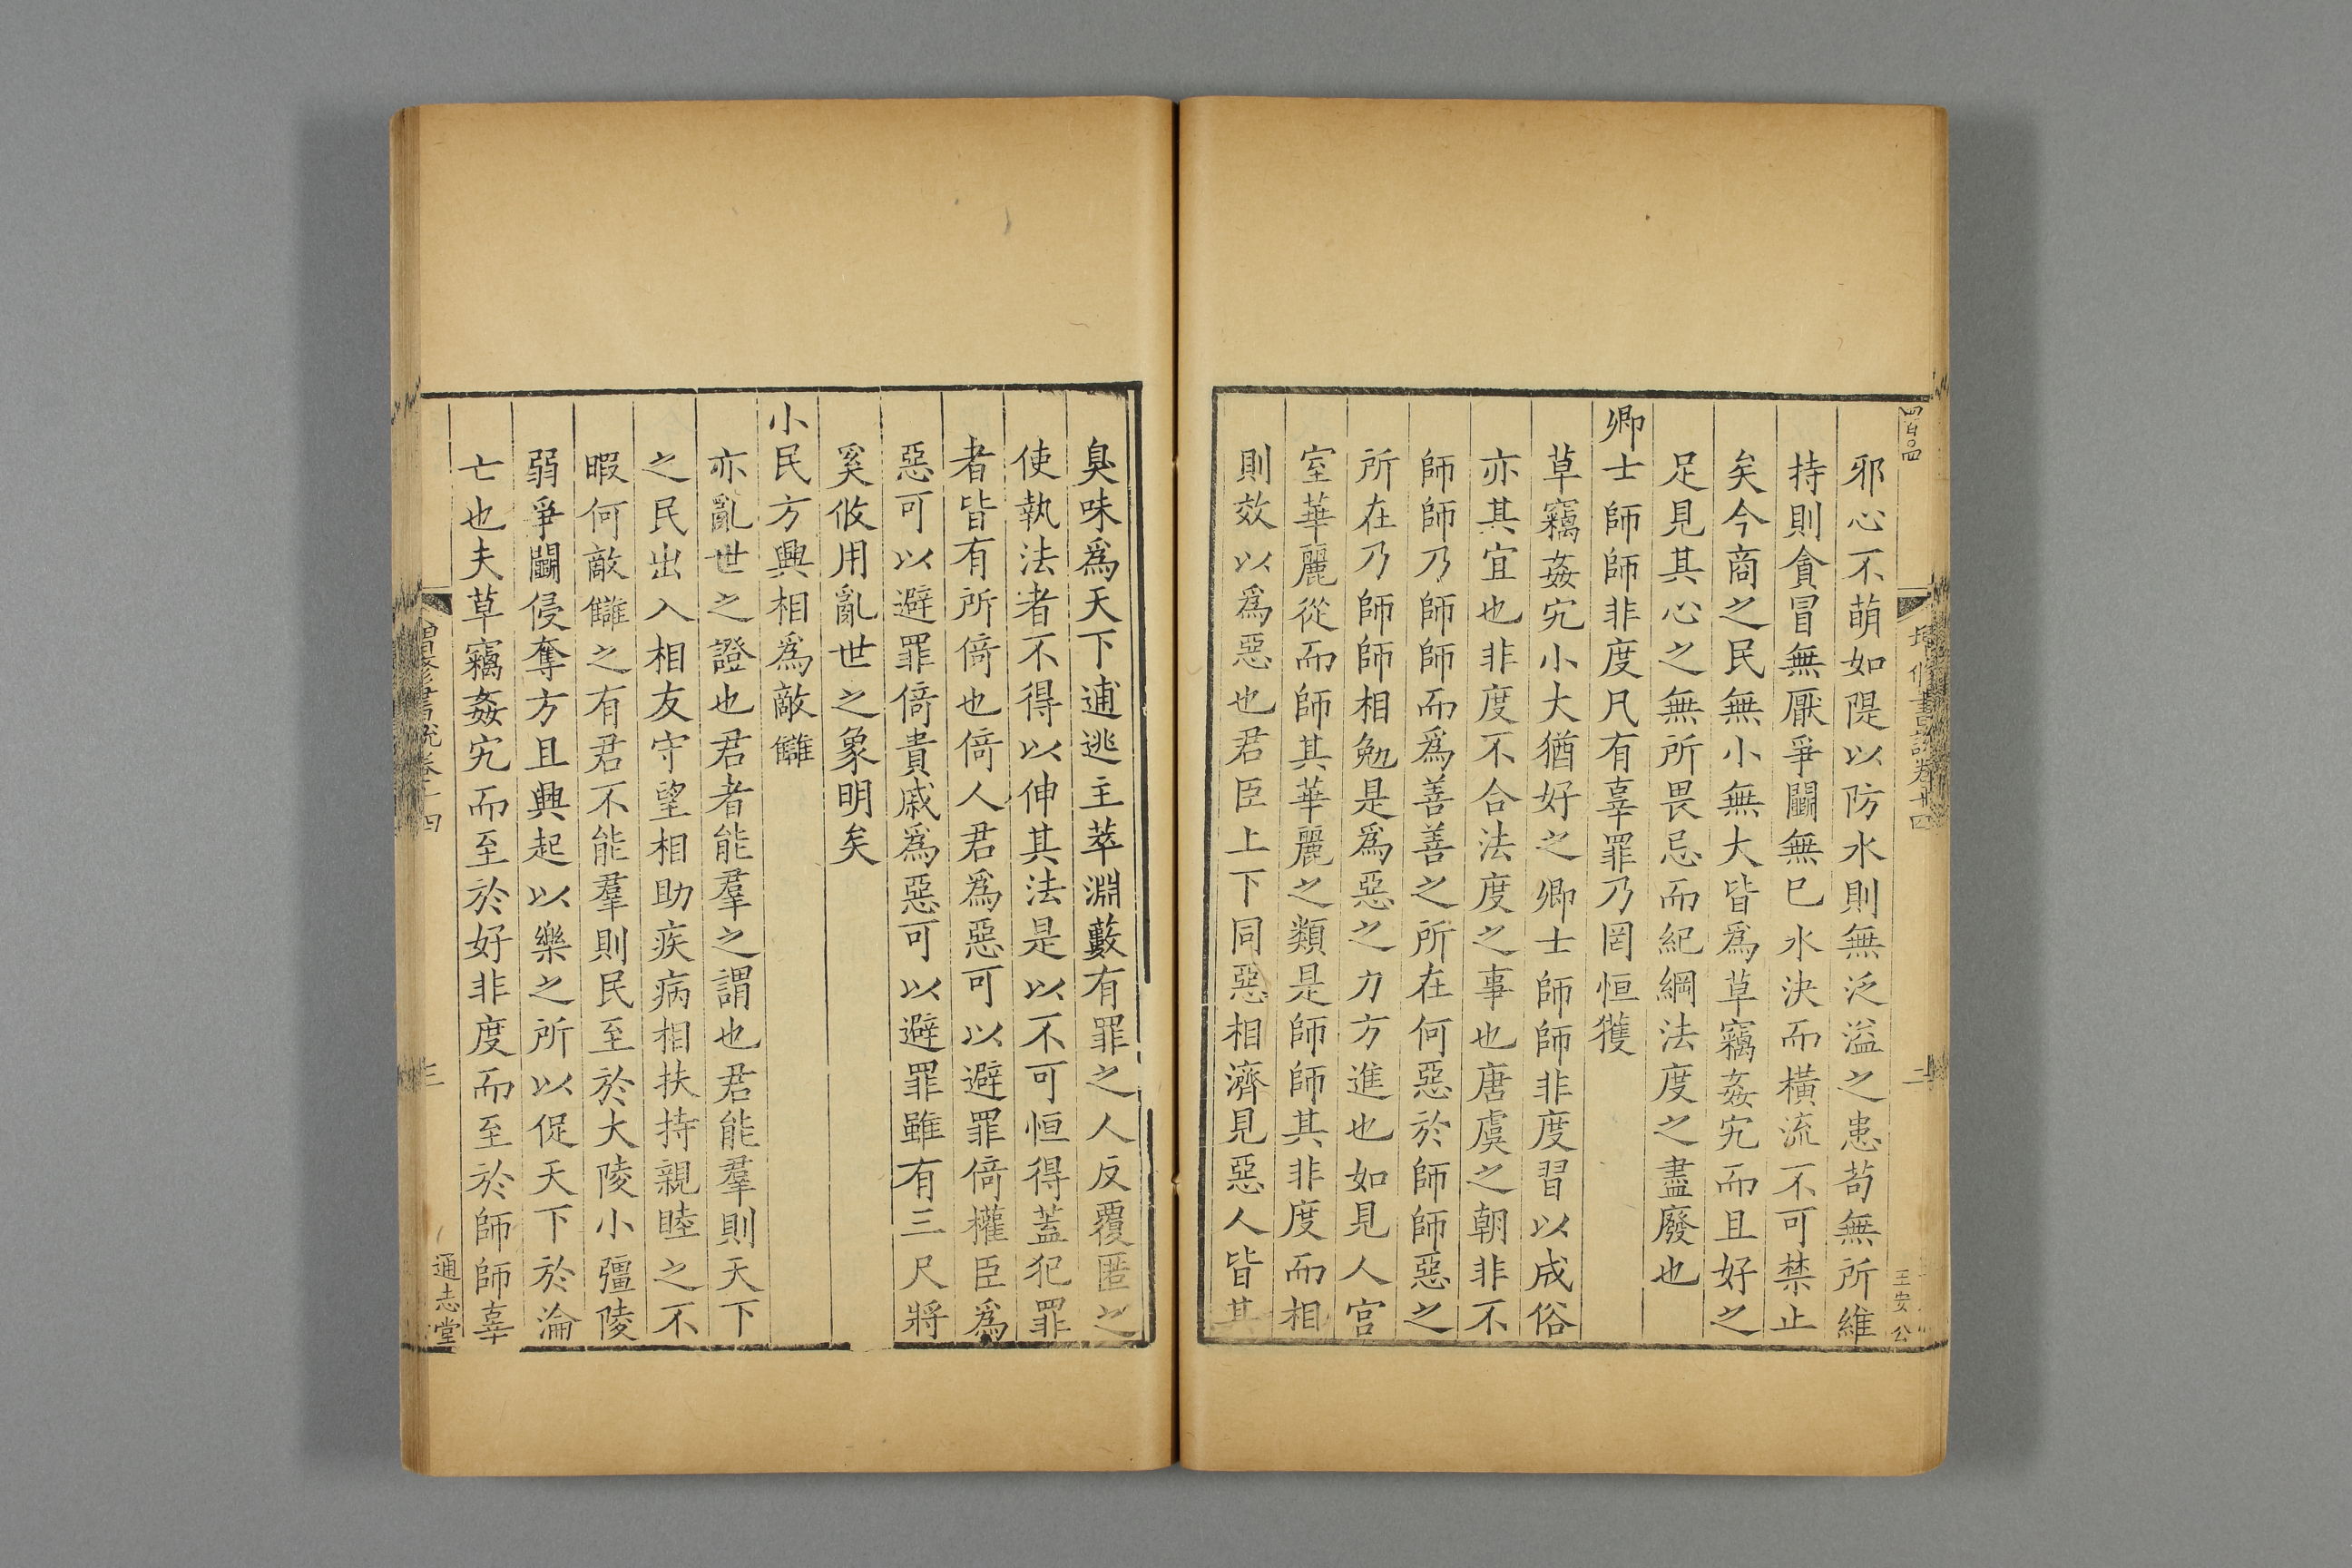 四百〇四
邪心不萌如隄以防水則無泛溢之患苟無所維
持則貪冒無厭爭鬬無已水決而橫流不可禁止
矣今商之民無小無大皆爲草竊姦宄而且好之
足見其心之無所畏忌而紀綱法度之盡廢也
卿士師師非度凡有辜罪乃罔恒獲
草竊姦宄小大猶好之卿士師師非度習以成俗
亦其宜也非度不合法度之事也唐虞之朝非不
師師乃師師而爲善善之所在何惡於師師惡之
所在乃師師相勉是爲惡之力方進也如見人宮
室華麗從而師其華麗之類是師師其非度而相
則效以爲惡也君臣上下同惡相濟見惡人皆其
臭味爲天下逋逃主萃淵藪有罪之人反覆匿之
使執法者不得以伸其法是以不可恒得蓋犯罪
者皆有所倚也倚人君爲惡可以避罪倚權臣爲
惡可以避罪倚貴戚爲惡可以避罪雖有三尺將
奚攸用亂世之象明矣
小民方興相爲敵讎
亦亂世之證也君者能羣之謂也君能羣則天下
之民出入相友守望相助疾病相扶持親睦之不
暇何敵讎之有君不能羣則民至於大陵小彊陵
弱爭鬬侵奪方且興起以樂之所以促天下於淪
亡也夫草竊姦宄而至於好非度而至於師師辜
增修書說卷二十四
三
通志堂